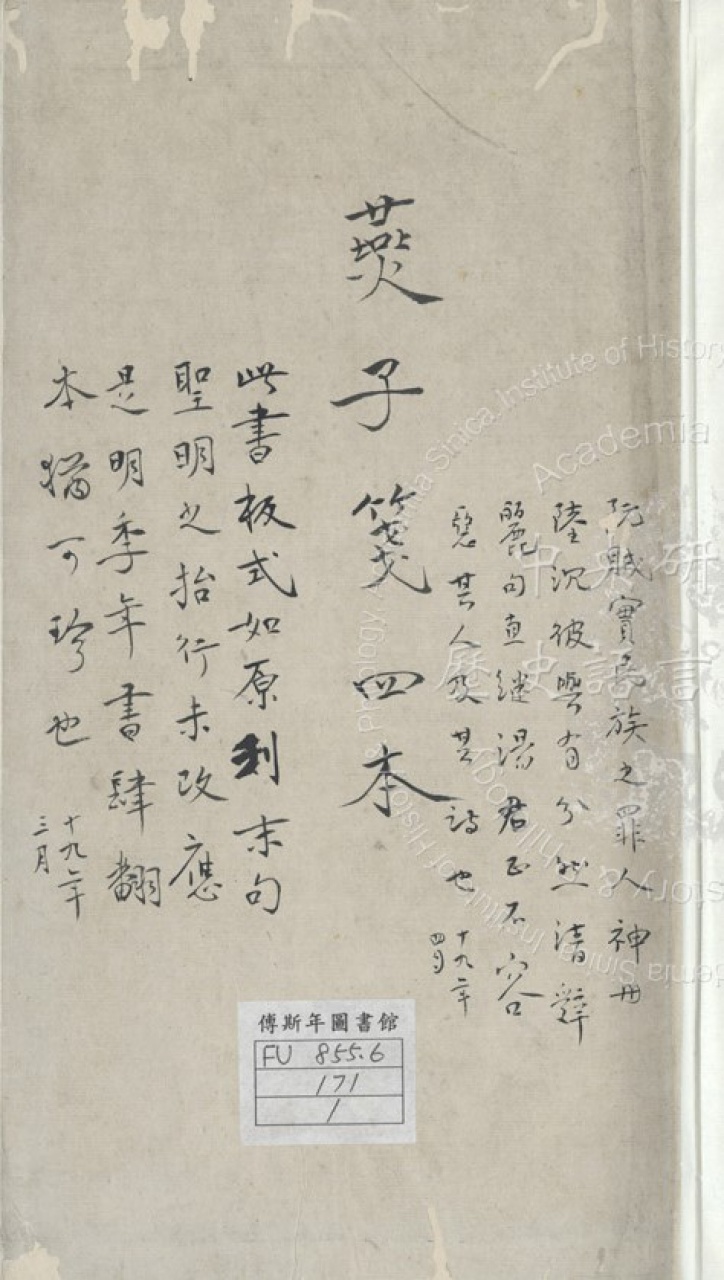 阮賊實民族之罪人神州
陸沉彼與有分然清辭
麗句直繼湯君正不容
其人及其詩也
十九年
四月
燕子箋四本
此書板式如原刻末句
聖明之抬行未改應
是明季年書肆翻
本猶可珍也
十九年
三月
傅斯年圖書館
FU 855.6
171
1
中央研
歷史語言
Academia
Sinica, Institute of History